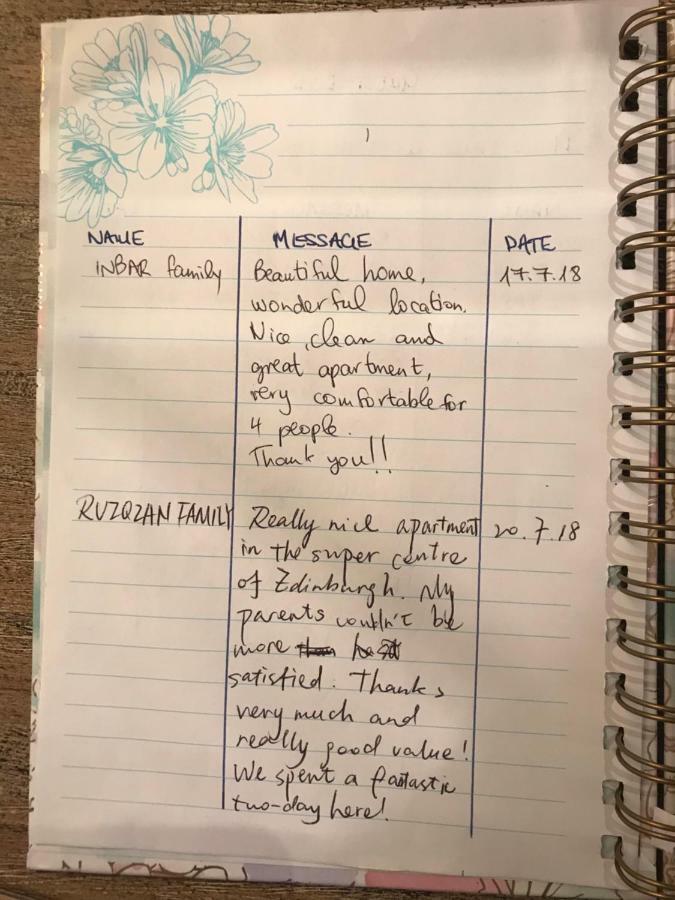 NAME MESSAGE DATE
INBAR family Beautiful home, 17.7.18
wonderful location.
Nice, clean and
great apartment,
very comfortable for
4 people.
Thank you!!
RUZQZAN FAMILY Really nice apartment 20.7.18
in the super centre
of Edinburgh. My
parents couldn't be
more
satisfied. Thanks
very much and
really good value!
We spent a fantastic
two-day here!